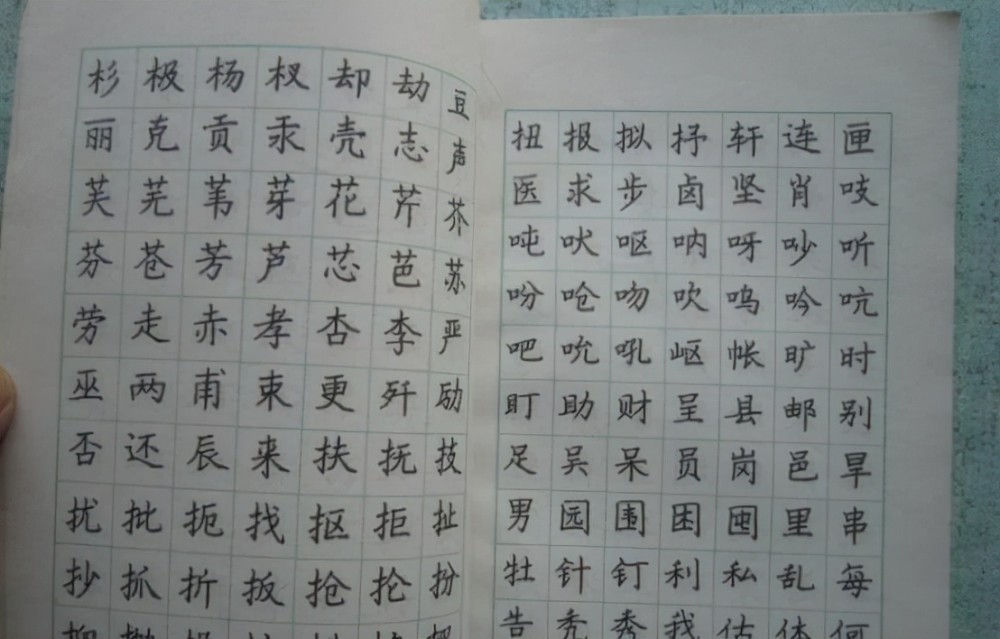 杉极杨杈却劫豆
丽克贡汞壳志声
芙芜苇芽花芹芥
芬苍芳芦芯芭苏
劳走赤孝杏李严
巫两甫束更歼励
否还辰来扶抚技
扰批扼找抠拒扯
抄抓折扳抢抡扮
扭报拟抒轩连匣
医求步卤坚肖吱
吨吠呕呐呀吵听
吩呛吻吹呜吟吭
吧吮吼岖帐旷时
盯助财呈县邮别
足吴呆员岗邑旱
男园围困囤里串
牡针钉利私乱每
告秃秀我估体何